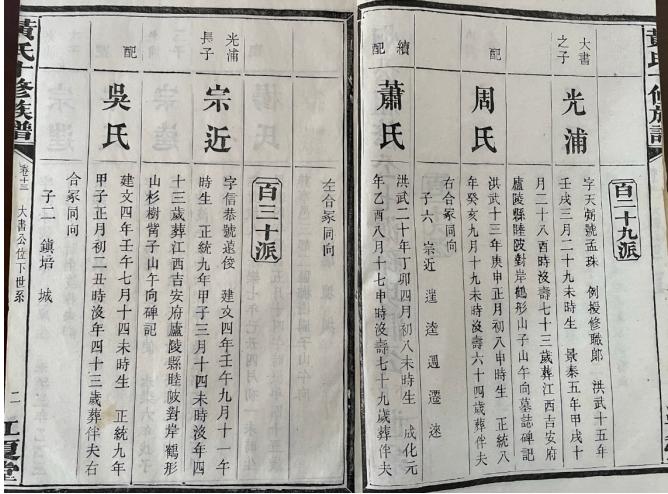 百二十九派
大書之子
光浦
字天弼號孟珠 例授修職郎 洪武十五年
壬戌三月二十九未時生 景泰五年甲戌十
月二十八酉時沒壽七十三歲葬江西吉安府
廬陵縣睦陂對岸鶴形山子山午向墓誌碑記
配
周氏
洪武十三年庚申正月初八申時生 正統八
年癸亥九月十九未時沒壽六十四歲葬伴夫
右合冢同向
子六 宗近 逵 遷
續配
蕭氏
洪武二十年丁卯四月初八未時生 成化元
年乙酉八月十七申時沒壽七十九歲葬伴夫
左合冢同向
百三十派
光浦長子
宗近
字信恭號遠俊 建文四年壬午九月十一午
時生 正統九年甲子三月十四未時沒年四
十三歲葬江西吉安府廬陵縣睦陂對岸鶴形
山杉樹背子山午向碑記
配
吳氏
建文四年壬午七月十四未時生 正統九年
甲子正月初二丑時沒年四十三歲葬伴夫右
合冢同向
子二 鎮培 城
黃氏十修族譜
卷十三
大書公位下世系
二
江夏堂